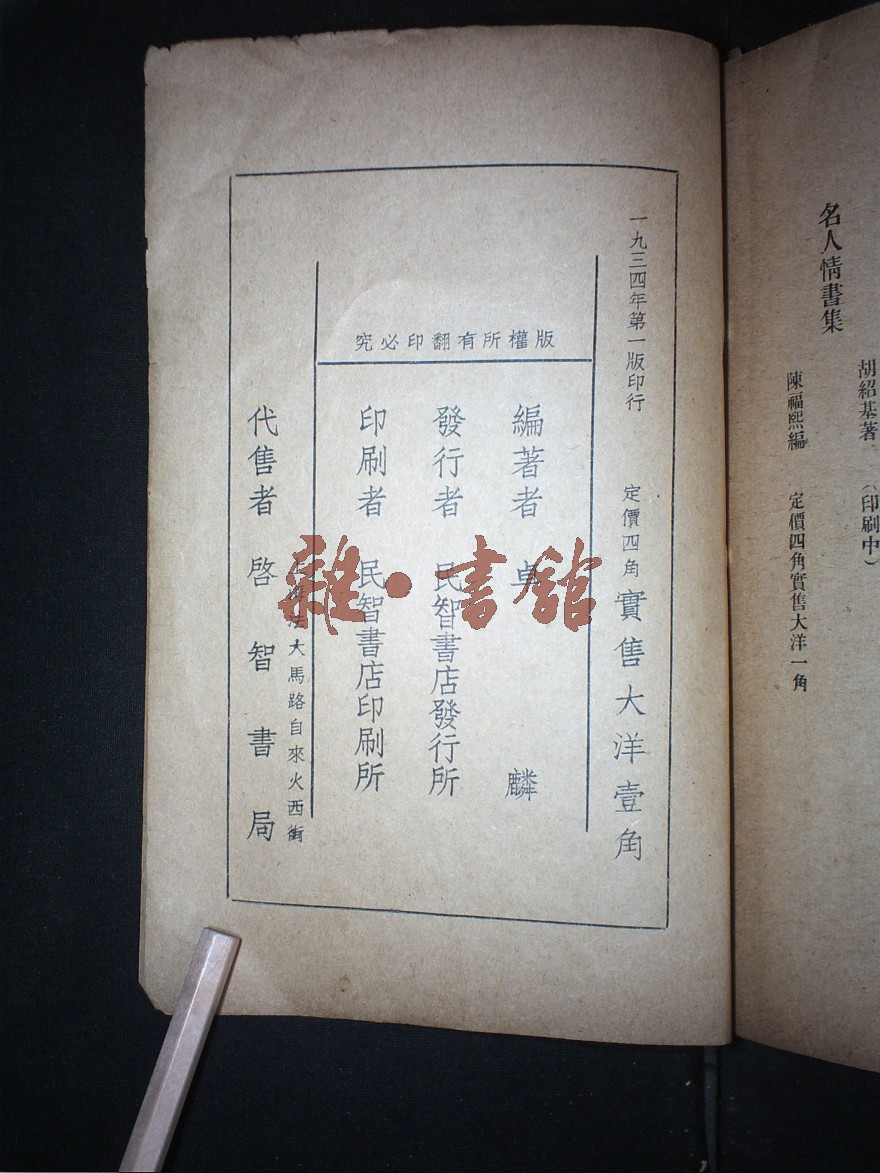 名人情書集
胡紹基著
（印刷中）
陳福熙編
定價四角實售大洋一角
一九三四年第一版印行
定價四角
實售大洋壹角
版權所有翻印必究
編著者 卓 麟
發行者 民智書店發行所
印刷者 民智書店印刷所
法大馬路自來火西街
代售者 啓智書局
雜·書館